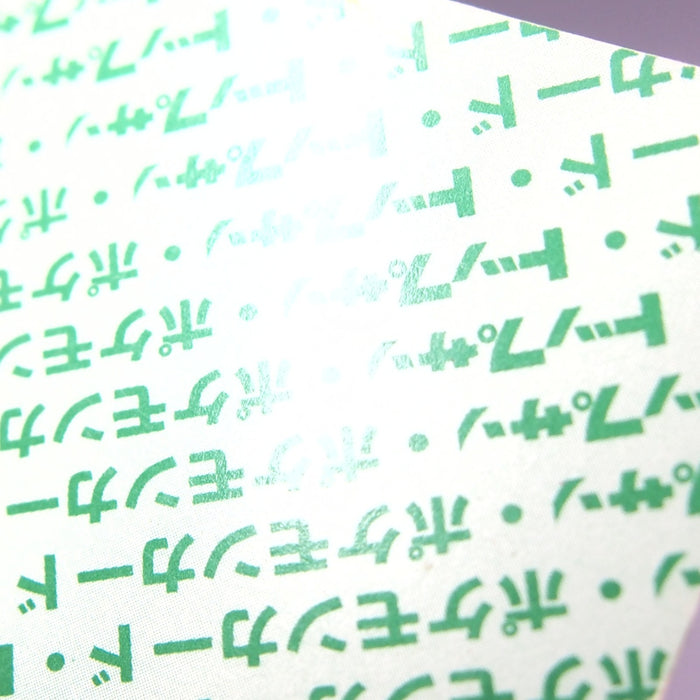 ポケモン
ン・ポケモンカード・ト
プサン・ポケモンカード
ップサン・ポケモンカー
トップサン・ポケモンカ
ド・トップサン・ポケモン
ード・トップサン・ポケモ
カード・トップサン・ポケ
カード・トップサン・
トップサン